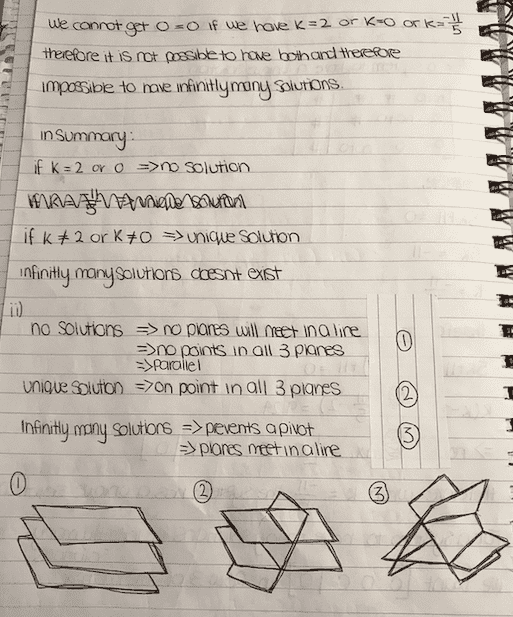 we cannot get 0=0 if we have k=2 or k=0 or k=-11/5
therefore it is not possible to have both and therefore
impossible to have infinitly many solutions.
in summary:
if k=2 or 0 => no solution
if k≠2 or k≠0 => unique solution
infinitly many solutions doesnt exist
ii)
no solutions => no planes will meet in a line ①
=> no points in all 3 planes
=> parallel
unique solution => on point in all 3 planes ②
Infinitly many solutions => pevents a pivot ③
=> planes meet in a line
① ② ③